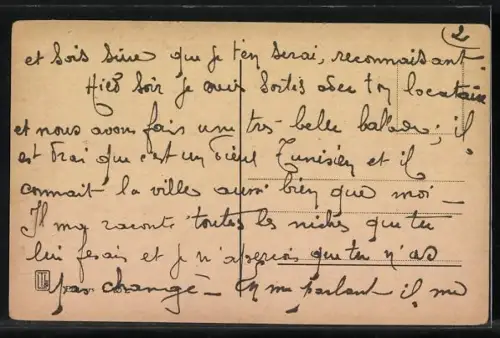 2
et sois sûre que je t'en serai, reconnaissant.
Hier soir je suis sortie avec ton locataire
et nous avons fais une très belle balade; il
est vrai que c'est un vieux Tunisien et il
connait la ville aussi bien que moi –
Il m'a raconté toutes les niches que tu
lui fesais et je m'aperçois que tu n'as
pas changé – En me parlant il me